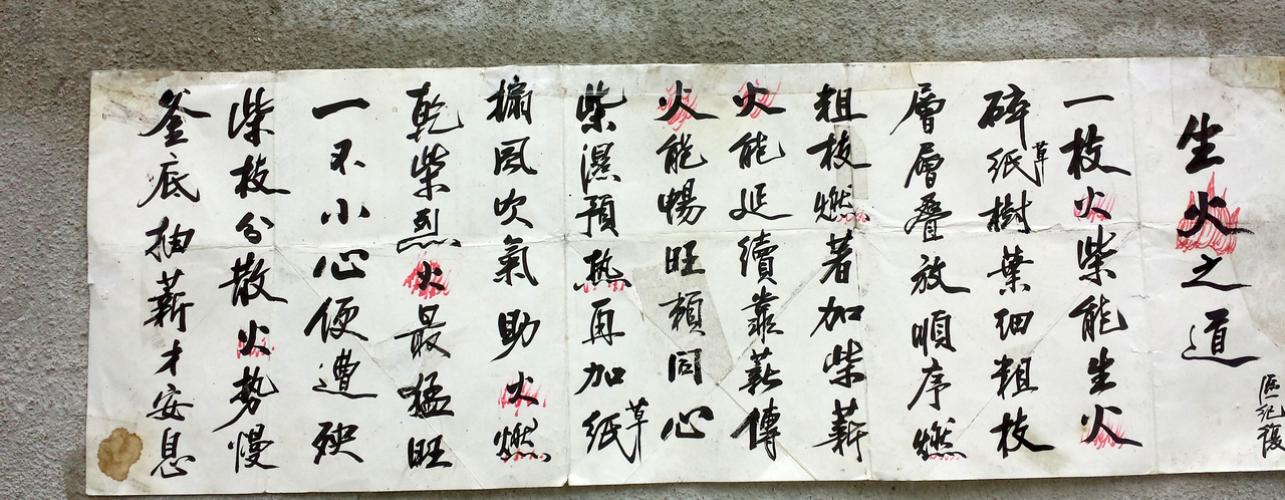 生火之道
區紀復
一枝火柴能生火
碎紙草樹葉細粗枝
層層疊放順序燃
粗枝燃著加柴薪
火能延續靠薪傳
火能暢旺賴同心
柴濕預熱再加紙草
搧風吹氣助火燃
乾柴烈火最猛旺
一不小心便遭殃
柴枝分散火勢慢
釜底抽薪才安息